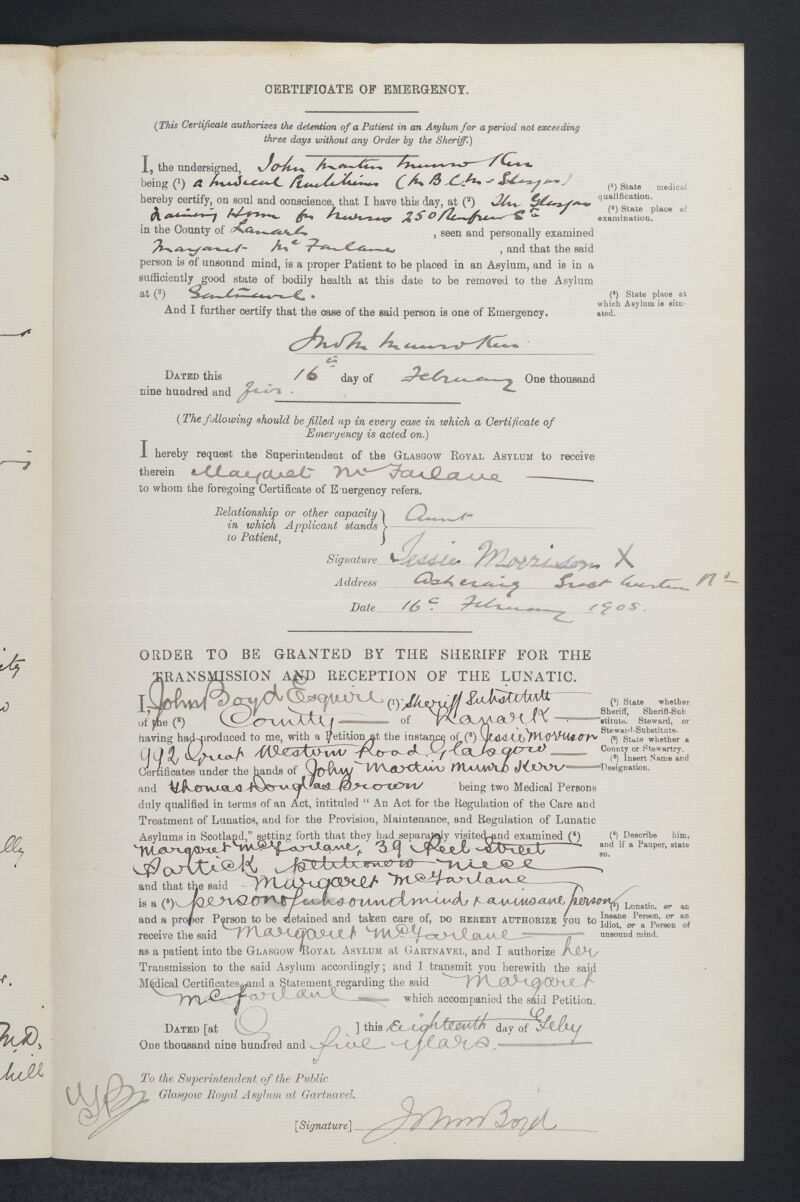 CERTIFICATE OF EMERGENCY.
(This Certificate authorizes the detention of a Patient in an Asylum for a period not exceeding
three days without any Order by the Sheriff.)
I, the undersigned, John Martin Munro Kerr
being (¹) a medical Practitioner (M B C.M. Glasgow)
(¹) State medical
qualification.
hereby certify, on soul and conscience, that I have this day, at (²) The Glasgow
(²) State place of
examination.
Training Home for Nurses 250 Renfrew St
in the County of Lanark , seen and personally examined
Margaret McFarlane , and that the said
person is of unsound mind, is a proper Patient to be placed in an Asylum, and is in a
sufficiently good state of bodily health at this date to be removed to the Asylum
at (³) Gartnavel.
(³) State place at
which Asylum is situ-
ated.
And I further certify that the case of the said person is one of Emergency.
Jno M Munro Kerr
DATED this 16th day of February One thousand
nine hundred and five.
(The following should be filled up in every case in which a Certificate of
Emergency is acted on.)
I hereby request the Superintendent of the GLASGOW ROYAL ASYLUM to receive
therein Margaret McFarlane
to whom the foregoing Certificate of Emergency refers.
Relationship or other capacity
in which Applicant stands
to Patient,
Aunt
Signature Jessie Morrison X
Address Ashcraig Great Western Rd
Date 16th February 1905.
ORDER TO BE GRANTED BY THE SHERIFF FOR THE
TRANSMISSION AND RECEPTION OF THE LUNATIC.
I, John Boyd Esquire (¹) Sheriff Substitute
of the (²) County of Lanark
(¹) State whether
Sheriff, Sheriff-Sub
stitute. Steward, or
Steward-Substitute.
having had produced to me, with a Petition at the instance of (³) Jessie Morrison
(²) State whether a
County or Stewartry.
992 Great Western Road, Glasgow
(³) Insert Name and
Designation.
Certificates under the hands of John Martin Munro Kerr
and Thomas Douglas Brown being two Medical Persons
duly qualified in terms of an Act, intituled “ An Act for the Regulation of the Care and
Treatment of Lunatics, and for the Provision, Maintenance, and Regulation of Lunatic
Asylums in Scotland,” setting forth that they had separately visited and examined (⁴)
(⁴) Describe him,
and if a Pauper, state
so.
Margaret McFarlane, 39 Peel Street
Partick petitioners niece
and that the said Margaret McFarlane
is a (⁵) person of unsound mind & an insane person
(⁵) Lunatic, or an
Insane Person, or an
Idiot, or a Person of
unsound mind.
and a proper Person to be detained and taken care of, DO HEREBY AUTHORIZE you to
receive the said Margaret McFarlane
as a patient into the GLASGOW ROYAL ASYLUM at GARTNAVEL, and I authorize her
Transmission to the said Asylum accordingly; and I transmit you herewith the said
Medical Certificates and a Statement regarding the said Margaret
McFarlane which accompanied the said Petition.
DATED [at ] this eighteenth day of Feby
One thousand nine hundred and five years.
To the Superintendent of the Public
Glasgow Royal Asylum at Gartnavel.
[Signature] John Boyd